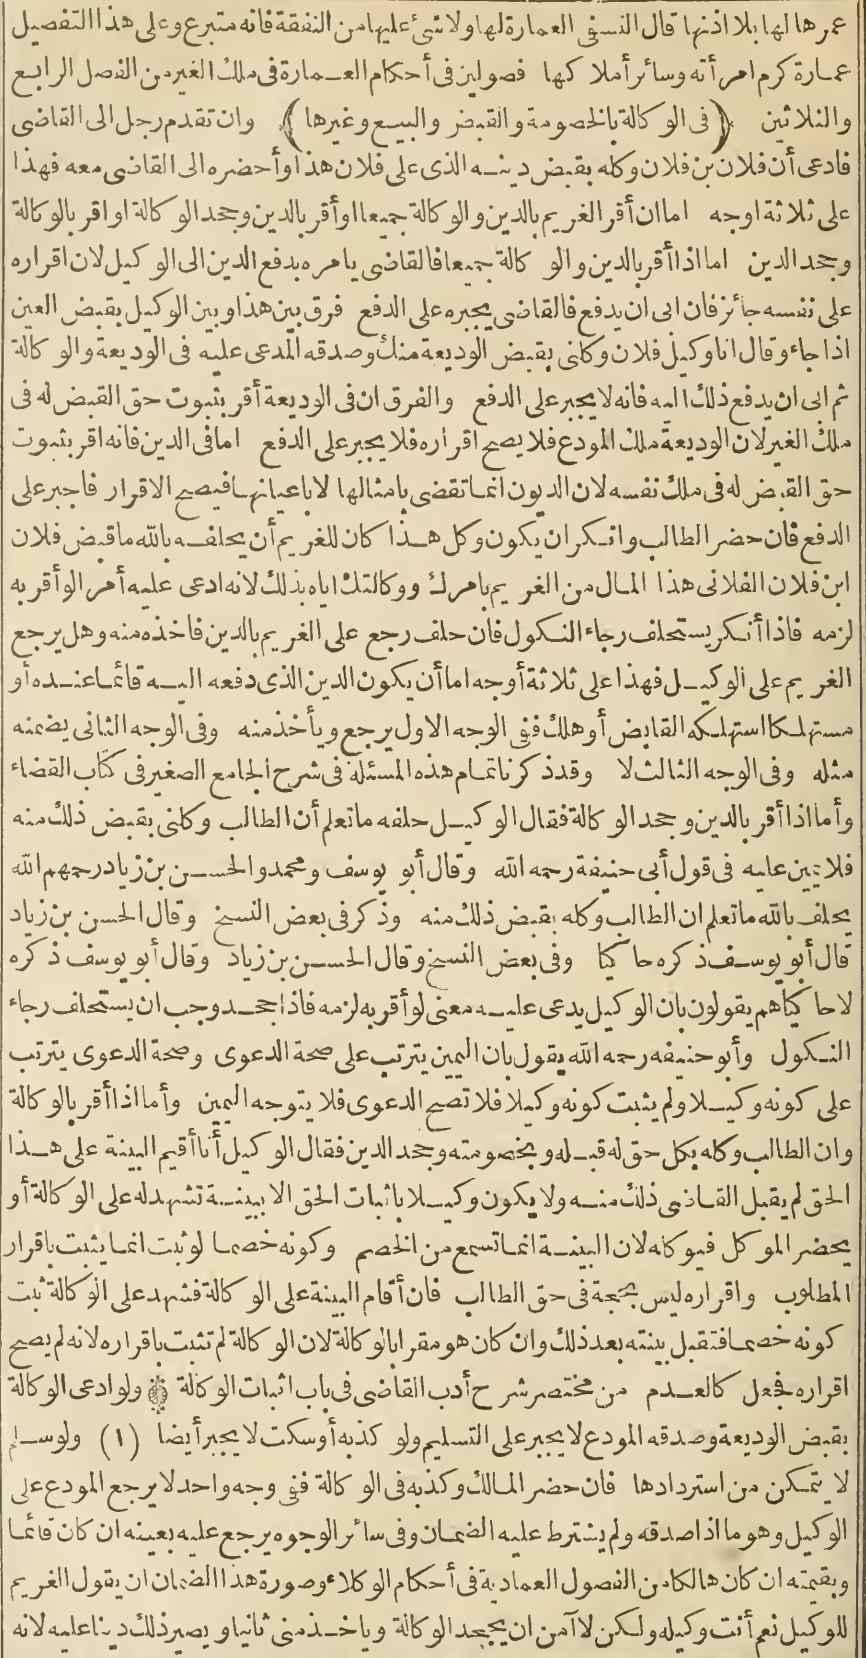 عمرها لها بلا اذنها قال النسفى العمارة لها ولا شئ عليها من النفقة فانه متبرع وعلى هذا التفصيل
عمارة كرم امرأته وسائر أملاكها فصولين فى أحكام العمارة فى ملك الغير من الفصل الرابع
والثلاثين (فى الوكالة بالخصومة والقبض والبيع وغيرها) وان تقدم رجل الى القاضى
فادعى أن فلان بن فلان وكله بقبض دينه الذى على فلان هذا وأحضره الى القاضى معه فهذا
على ثلاثة اوجه اما ان أقر الغريم بالدين والوكالة جميعا او أقر بالدين وجحد الوكالة او اقر بالوكالة
وجحد الدين اما اذا أقر بالدين والوكالة جميعا فالقاضى يامره بدفع الدين الى الوكيل لان اقراره
على نفسه جائز فان ابى ان يدفع فالقاضى يجبره على الدفع فرق بين هذا وبين الوكيل بقبض العين
اذا جاء وقال انا وكيل فلان وكلنى بقبض الوديعة منك وصدقه المدعى عليه فى الوديعة والوكالة
ثم ابى ان يدفع ذلك اليه فانه لا يجبر على الدفع والفرق ان فى الوديعة أقر بثبوت حق القبض له فى
ملك الغير لان الوديعة ملك المودع فلا يصح اقراره فلا يجبر على الدفع اما فى الدين فانه اقر بثبوت
حق القبض له فى ملك نفسه لان الديون انما تقضى بامثالها لا باعيانها فيصح الاقرار فاجبر على
الدفع فان حضر الطالب وانكر ان يكون وكل هذا كان للغريم أن يحلفه بالله ما قبض فلان
ابن فلان الفلانى هذا المال من الغريم بامرك ووكالتك اياه بذلك لانه ادعى عليه أمرا لو أقر به
لزمه فاذا أنكر يستحلف رجاء النكول فان حلف رجع على الغريم بالدين فاخذه منه وهل يرجع
الغريم على الوكيل فهذا على ثلاثة أوجه اما أن يكون الدين الذى دفعه اليه قائما عنده أو
مستهلكا استهلكه القابض أو هلك ففى الوجه الاول يرجع ويأخذ منه وفى الوجه الثانى يضمنه
مثله وفى الوجه الثالث لا وقد ذكرنا تمام هذه المسئلة فى شرح الجامع الصغير فى كتاب القضاء
وأما اذا أقر بالدين وجحد الوكالة فقال الوكيل حلفه ما تعلم أن الطالب وكلنى بقبض ذلك منه
فلا يمين عليه فى قول أبى حنيفة رحمه الله وقال أبو يوسف ومحمد والحسن بن زياد رحمهم الله
يحلف بالله ما تعلم ان الطالب وكله بقبض ذلك منه وذكر فى بعض النسخ وقال الحسن بن زياد
قال أبو يوسف ذكره حاكيا وفى بعض النسخ وقال الحسن بن زياد وقال أبو يوسف ذكره
لا حاكيا هم يقولون بان الوكيل يدعى عليه معنى لو أقر به لزمه فاذا جحد وجب ان يستحلف رجاء
النكول وأبو حنيفه رحمه الله يقول بان اليمين يترتب على صحة الدعوى وصحة الدعوى يترتب
على كونه وكيلا ولم يثبت كونه وكيلا فلا تصح الدعوى فلا يتوجه اليمين وأما اذا أقر بالوكالة
وان الطالب وكله بكل حق له قبله وبخصومته وجحد الدين فقال الوكيل أنا أقيم البينة على هذا
الحق لم يقبل القاضى ذلك منه ولا يكون وكيلا باثبات الحق الا ببينة تشهد له على الوكالة أو
يحضر الموكل فيوكله لان البينة انما تسمع من الخصم وكونه خصما لو ثبت انما يثبت باقرار
المطلوب واقراره ليس بحجة فى حق الطالب فان أقام البينة على الوكالة فشهد على الوكالة ثبت
كونه خصما فتقبل بينته بعد ذلك وان كان هو مقرا بالوكالة لان الوكالة لم تثبت باقراره لانه لم يصح
اقراره فجعل كالعدم من مختصر شرح أدب القاضى فى باب اثبات الوكالة ولو ادعى الوكالة
بقبض الوديعة وصدقه المودع لا يجبر على التسليم ولو كذبه أو سكت لا يجبر أيضا (١) ولو سلم
لا يتمكن من استردادها فان حضر المالك وكذبه فى الوكالة ففى وجه واحد لا يرجع المودع على
الوكيل وهو ما اذا صدقه ولم يشترط عليه الضمان وفى سائر الوجوه يرجع عليه بعينه ان كان قائما
وبقيمته ان كان هالكا من الفصول العمادية فى أحكام الوكلاء وصورة هذا الضمان ان يقول الغريم
للوكيل نعم أنت وكيله ولكن لا آمن ان يجحد الوكالة وياخذ منى ثانيا ويصير ذلك دينا عليه لانه